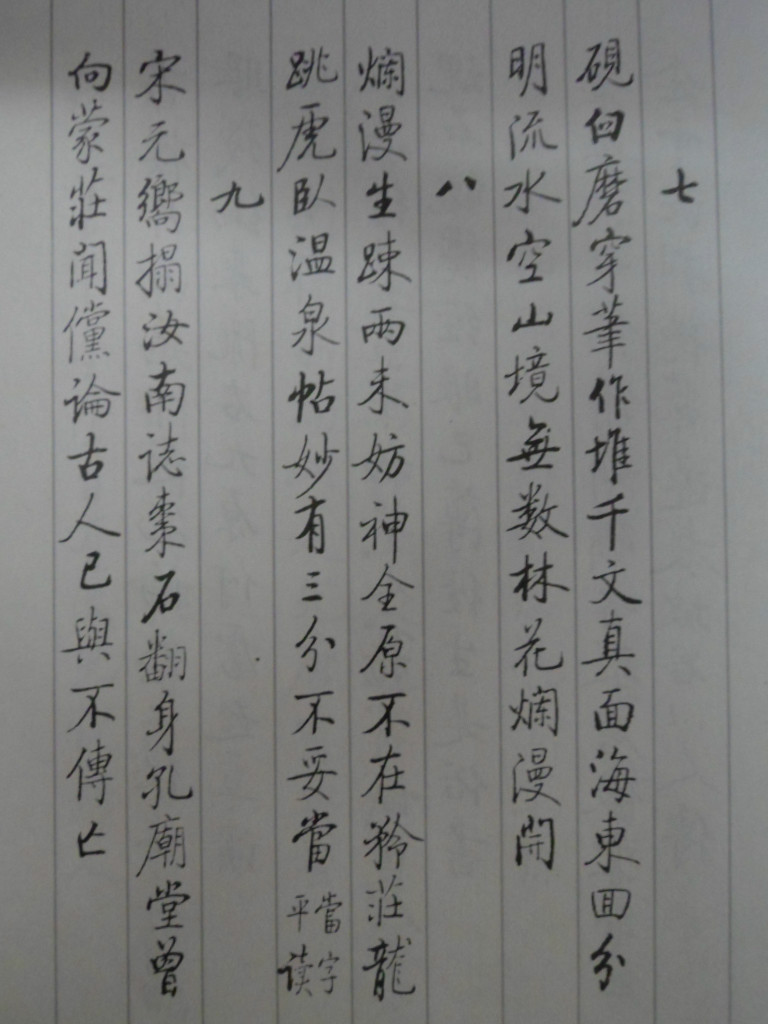 七
硯臼磨穿筆作堆千文真面海東回分
明流水空山境無数林花爛漫開
八
爛漫生踈兩未妨神全原不在矜莊龍
跳虎臥温泉帖妙有三分不妥當當字平读
九
宋元嚮搨汝南誌棗石翻身孔廟堂曾
向蒙莊聞儻論古人已與不傳亡